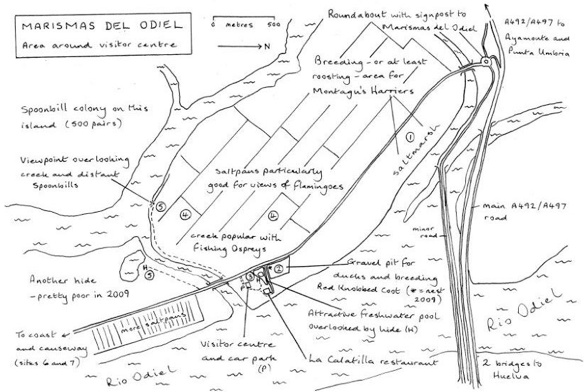 MARISMAS DEL ODIEL
Area around visitor centre
0 metres 500
N
Roundabout with signpost to
Marismas del Odiel
A492/A497 to
Ayamonte and
Punta Umbria
Breeding - or at least
roosting - area for
Montagu's Harriers
Spoonbill colony on this
island (500 pairs)
1
saltmarsh
Viewpoint overlooking
creek and distant
Spoonbills
saltpans particularly
good for views of flamingoes
5
4
4
main A492/A497
road
minor
road
creek popular with
Fishing Ospreys
H
5
Another hide
- pretty poor in 2009
3
2
Gravel pit for
ducks and breeding
Red Knobbed Coot (* = nest
2009)
Attractive freshwater pool
overlooked by hide (H)
more saltpans
To coast
and causeway
(sites 6 and 7)
Visitor centre
and car park
(P)
La Calatilla restaurant
Rio Odiel
Rio Odiel
2 bridges to
Huelva